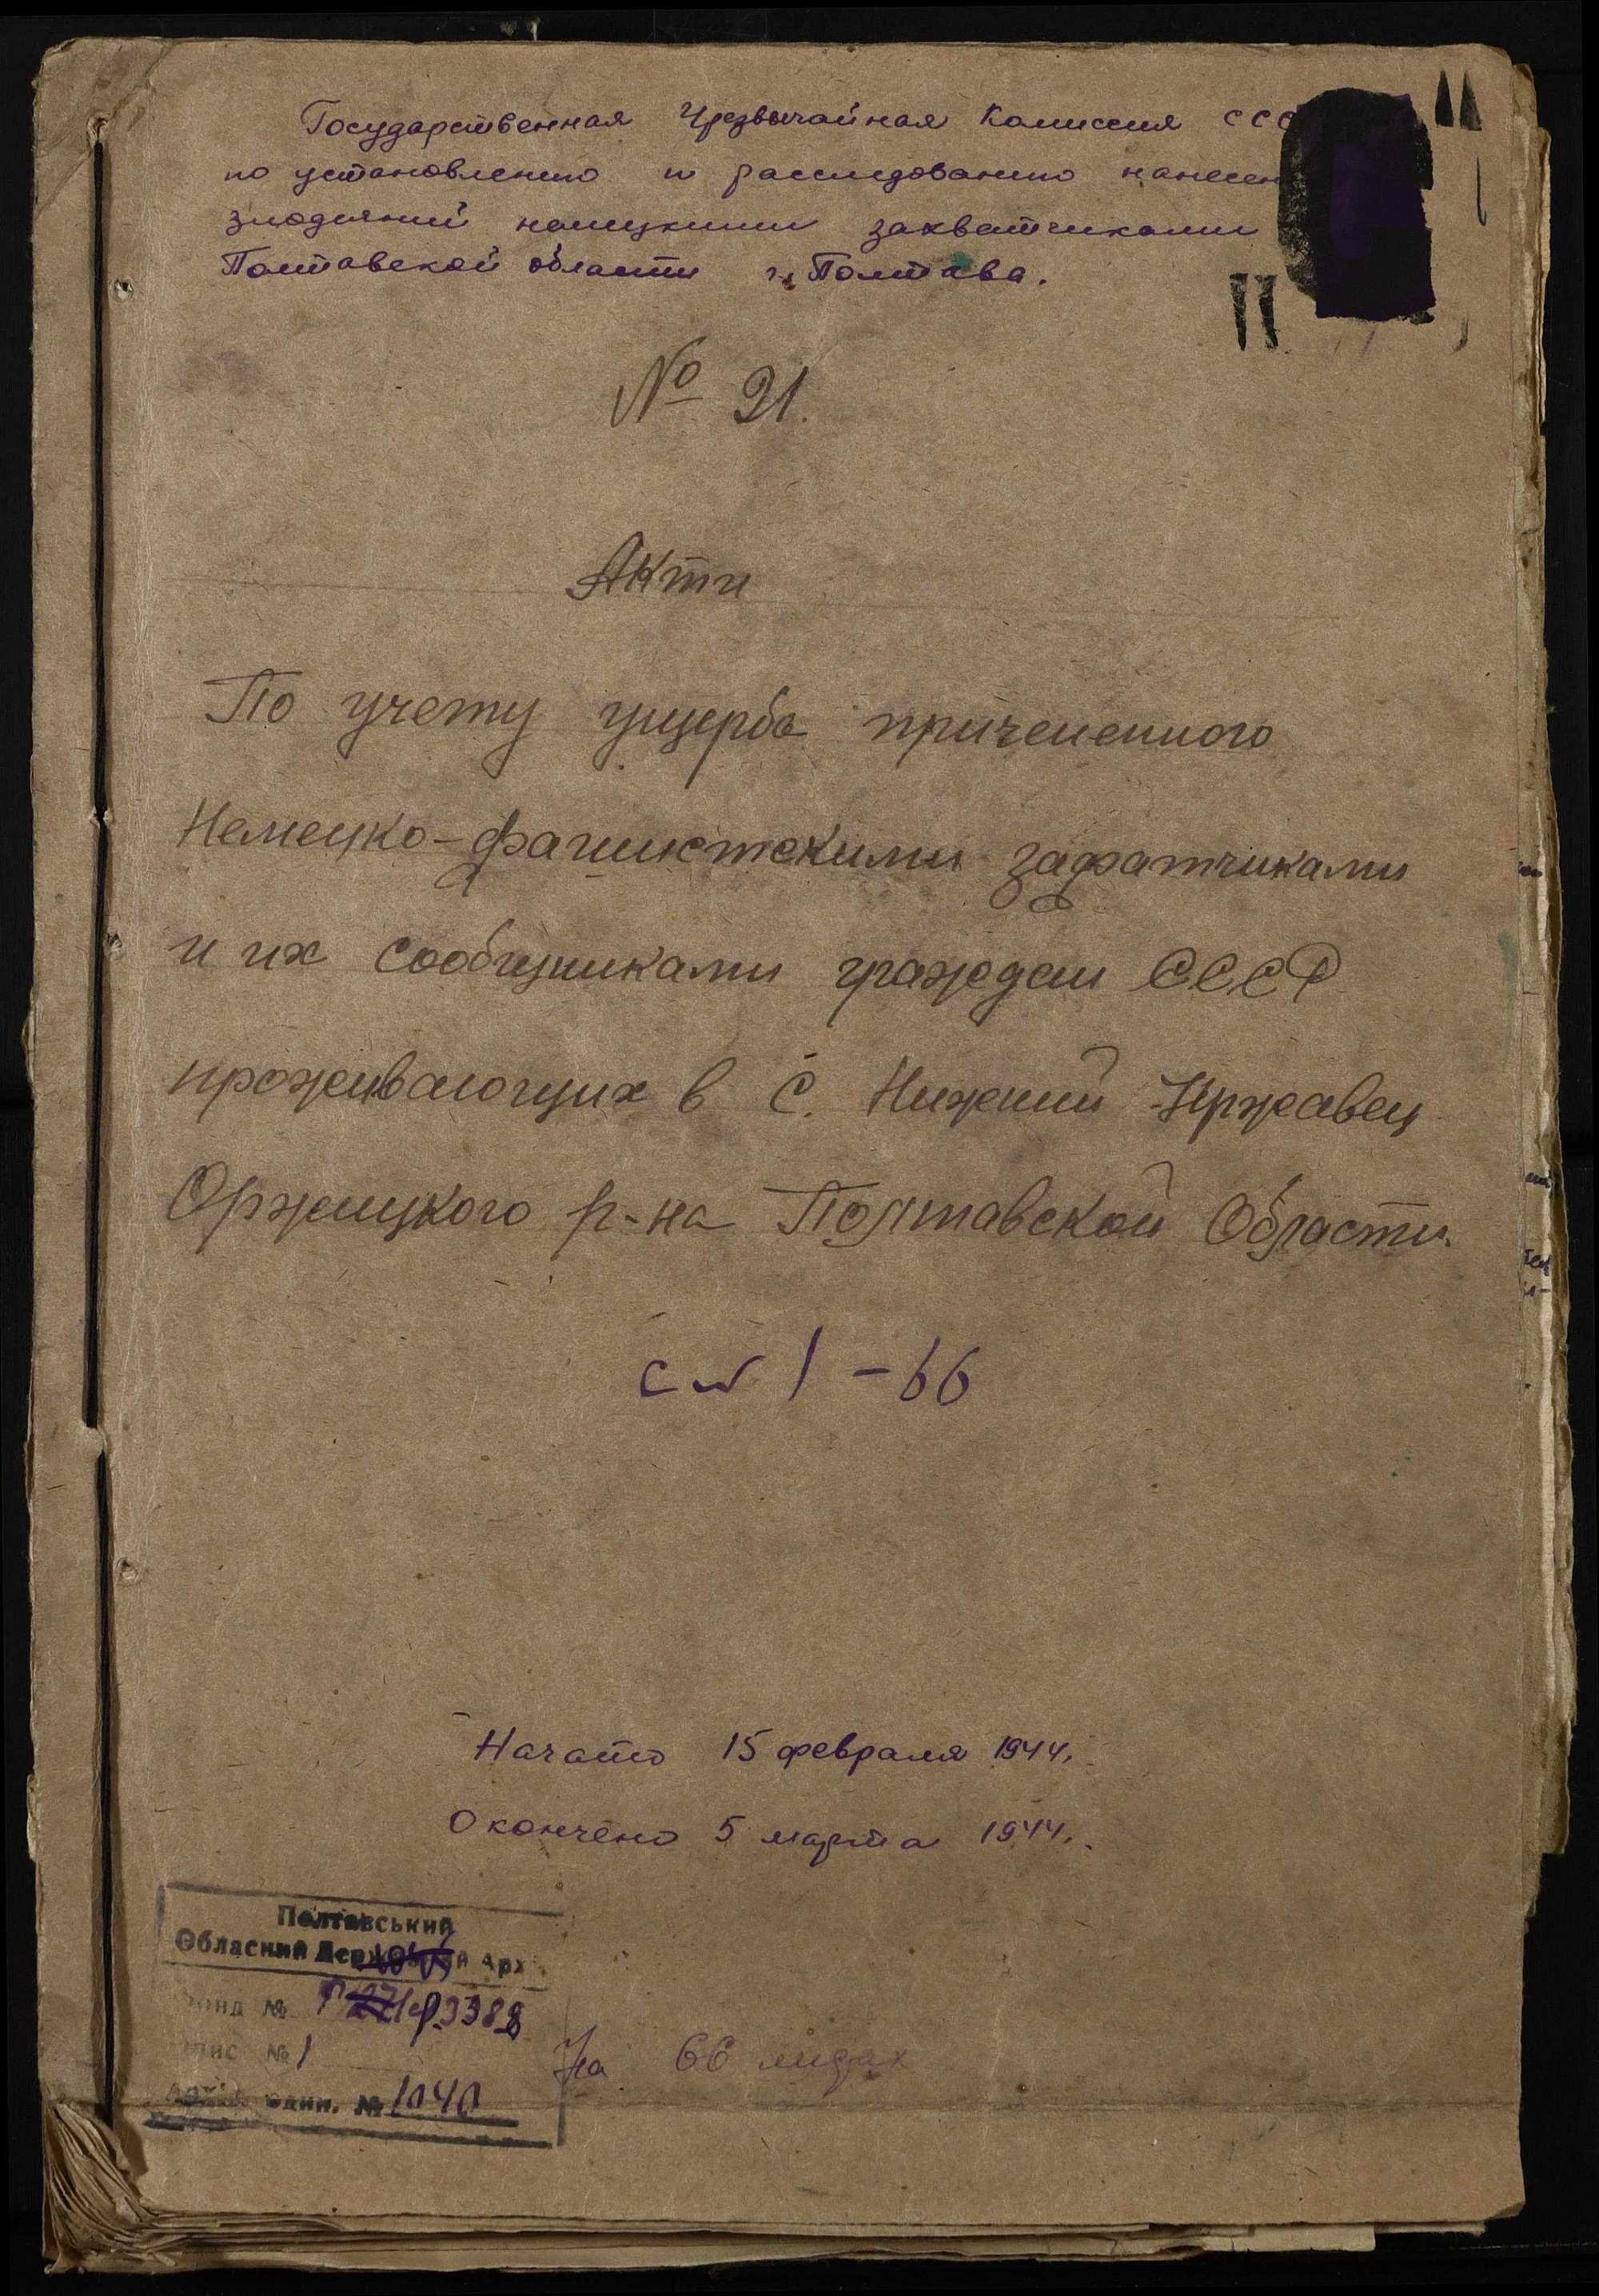 Государственная Чрезвычайная Комиссия ССС
по установлению и расследованию нанесен
злодеяний немецкими захватчиками
Полтавской области г. Полтава.
№ 21.
Акти
По учету ущерба причененного
Немецко-фашистскими зафатчиками
и их сообщниками граждан СССР
проживающих в с. Нижний Иржавец
Оржицкого р-на Полтавской Области.
с № 1 - 66
Начато 15 февраля 1944.
Окончено 5 марта 1944.
Полтавський
Обласний Державний Арх
Фонд № Р3388
Опис № 1
один. № 1040
На 66 лидах